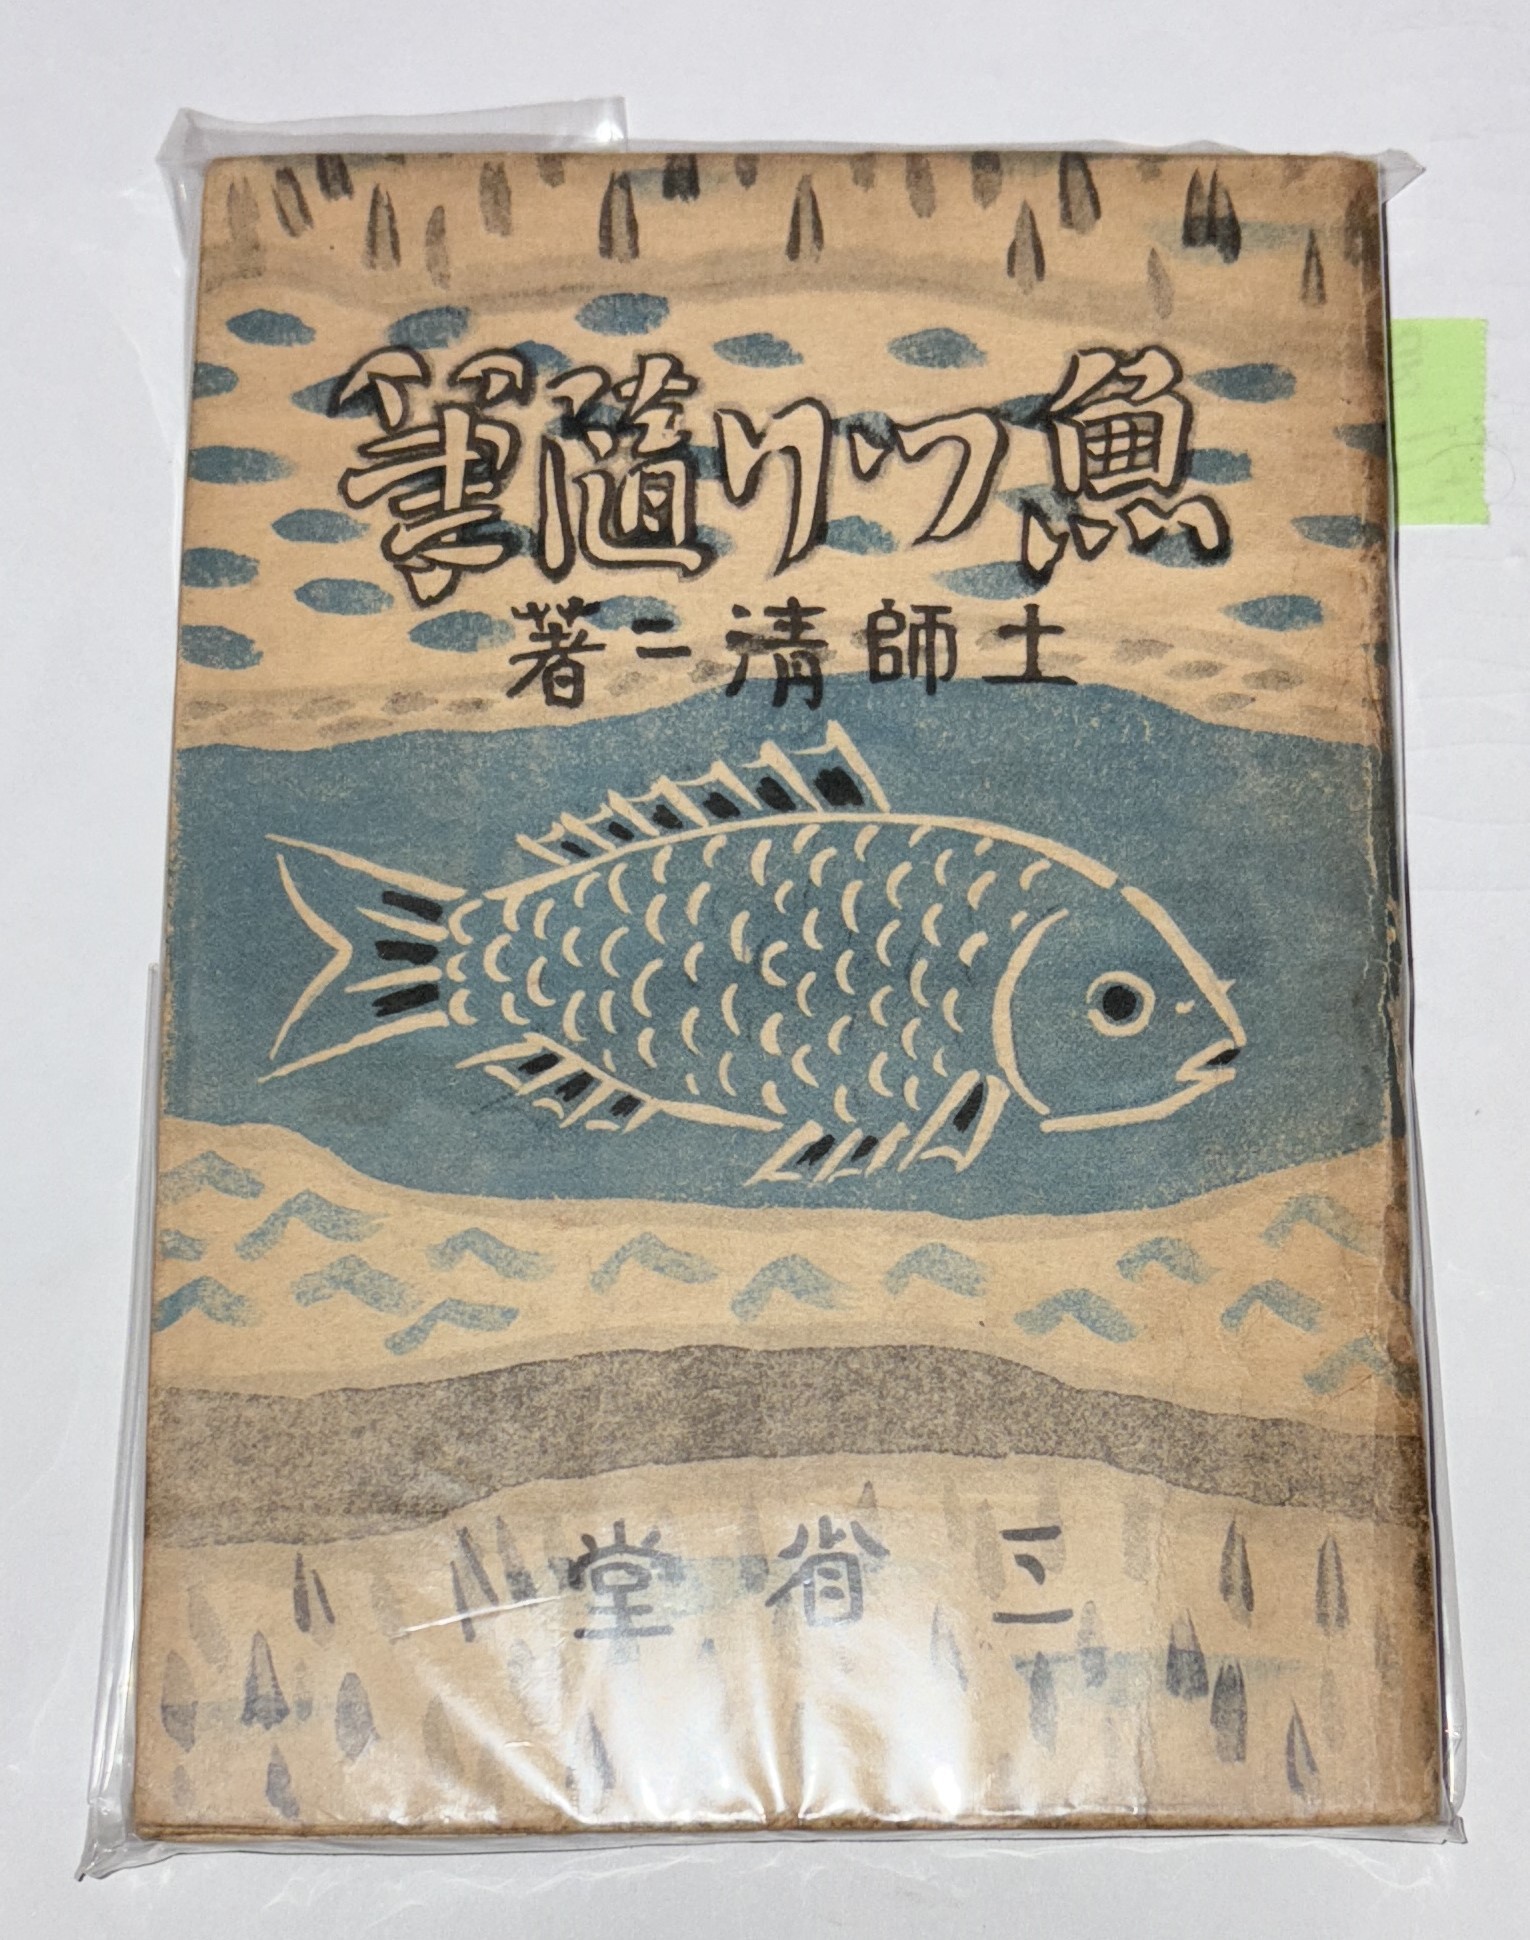 魚つり隨筆
土師清二著
三省堂